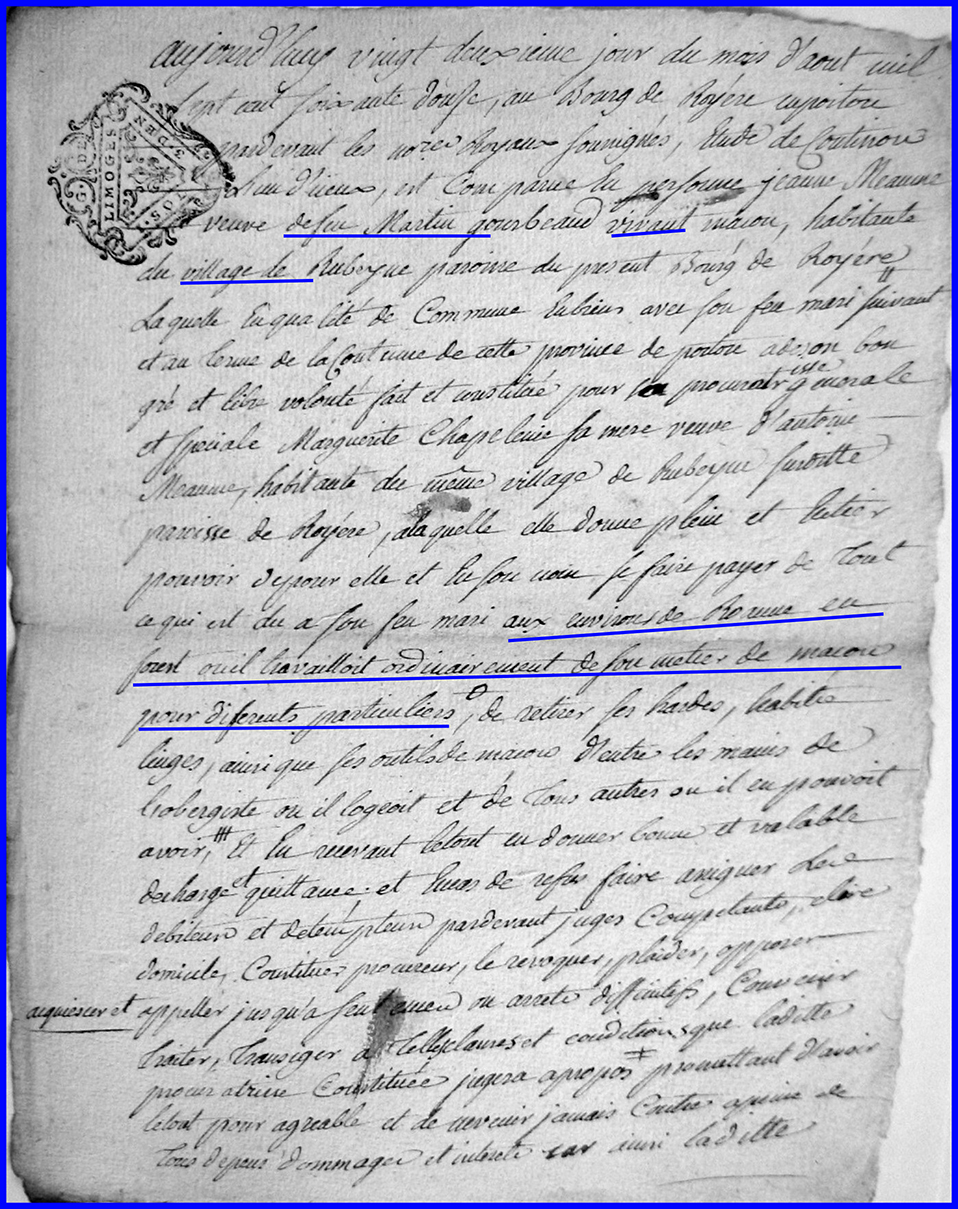 aujourd'huy vingt deuxieme jour du mois d'aout mil
sept cent soixante douse, au Bourg de Royére enpoitou
pardevant les no.res Royaux soussignés, Etude de Coutinou
G. DE LIMOGES
3. DEN
SOLS
lun d'iceux, est Comparue En personne jeanne Meaume
veuve defeu Martin gourbeaud vivant macon, habitante
du village de Rubeyne paroisse du present Bourg de Royére
Laquelle En qualité de Commune Enbiens avec son feu mari suivant
et au terme de la Coutume de cette province de poitou a deson bon
gré et libre volonté fait et constitué pour sa procuratrisse generale
et speciale Marguerite Chapeleine sa mere veuve d'antoine
Meaume, habitante du même village de Rubeyne susditte
paroisse de Royére, alaquelle elle donne plein et Entier
pouvoir de pour elle et En son nom se faire payer de Tout
ce qui est du a son feu mari aux environs de Roanne en
forest ou il travailloit ordinairement de son metier de macon
pour diferents particuliers, de retirer ses hardes, habits
linges, ainsi que ses outils de macon d'entre les mains de
l'obergiste ou il logeoit et de tous autres ou il en pouvoit
avoir, Et En recevant letout en donner bonne et valable
decharge et quittance; et Encas de refus faire assigner Les
debiteurs et detempteurs pardevant juges Competants, elire
domicile, Constituer procureur, le revoquer, plaider, opposer
acquiescer et
appeller jusqu'a sentence ou arrets diffinitifs, Convenir
traiter, transiger a telles clauses et conditions que laditte
procuratrice Constituée jugera apropos promettant d'avoir
letout pour agreable et de nevenir jamais Contre apeine de
tous depens dommages et interets car ainsi laditte